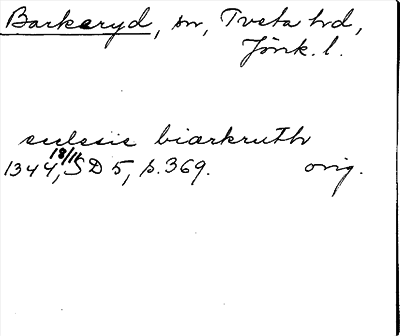 Barkeryd, sn, Tveta hd,
Jönk. l.
eclesie biarkruth
1344 18/11, SD 5, p. 369. orig.